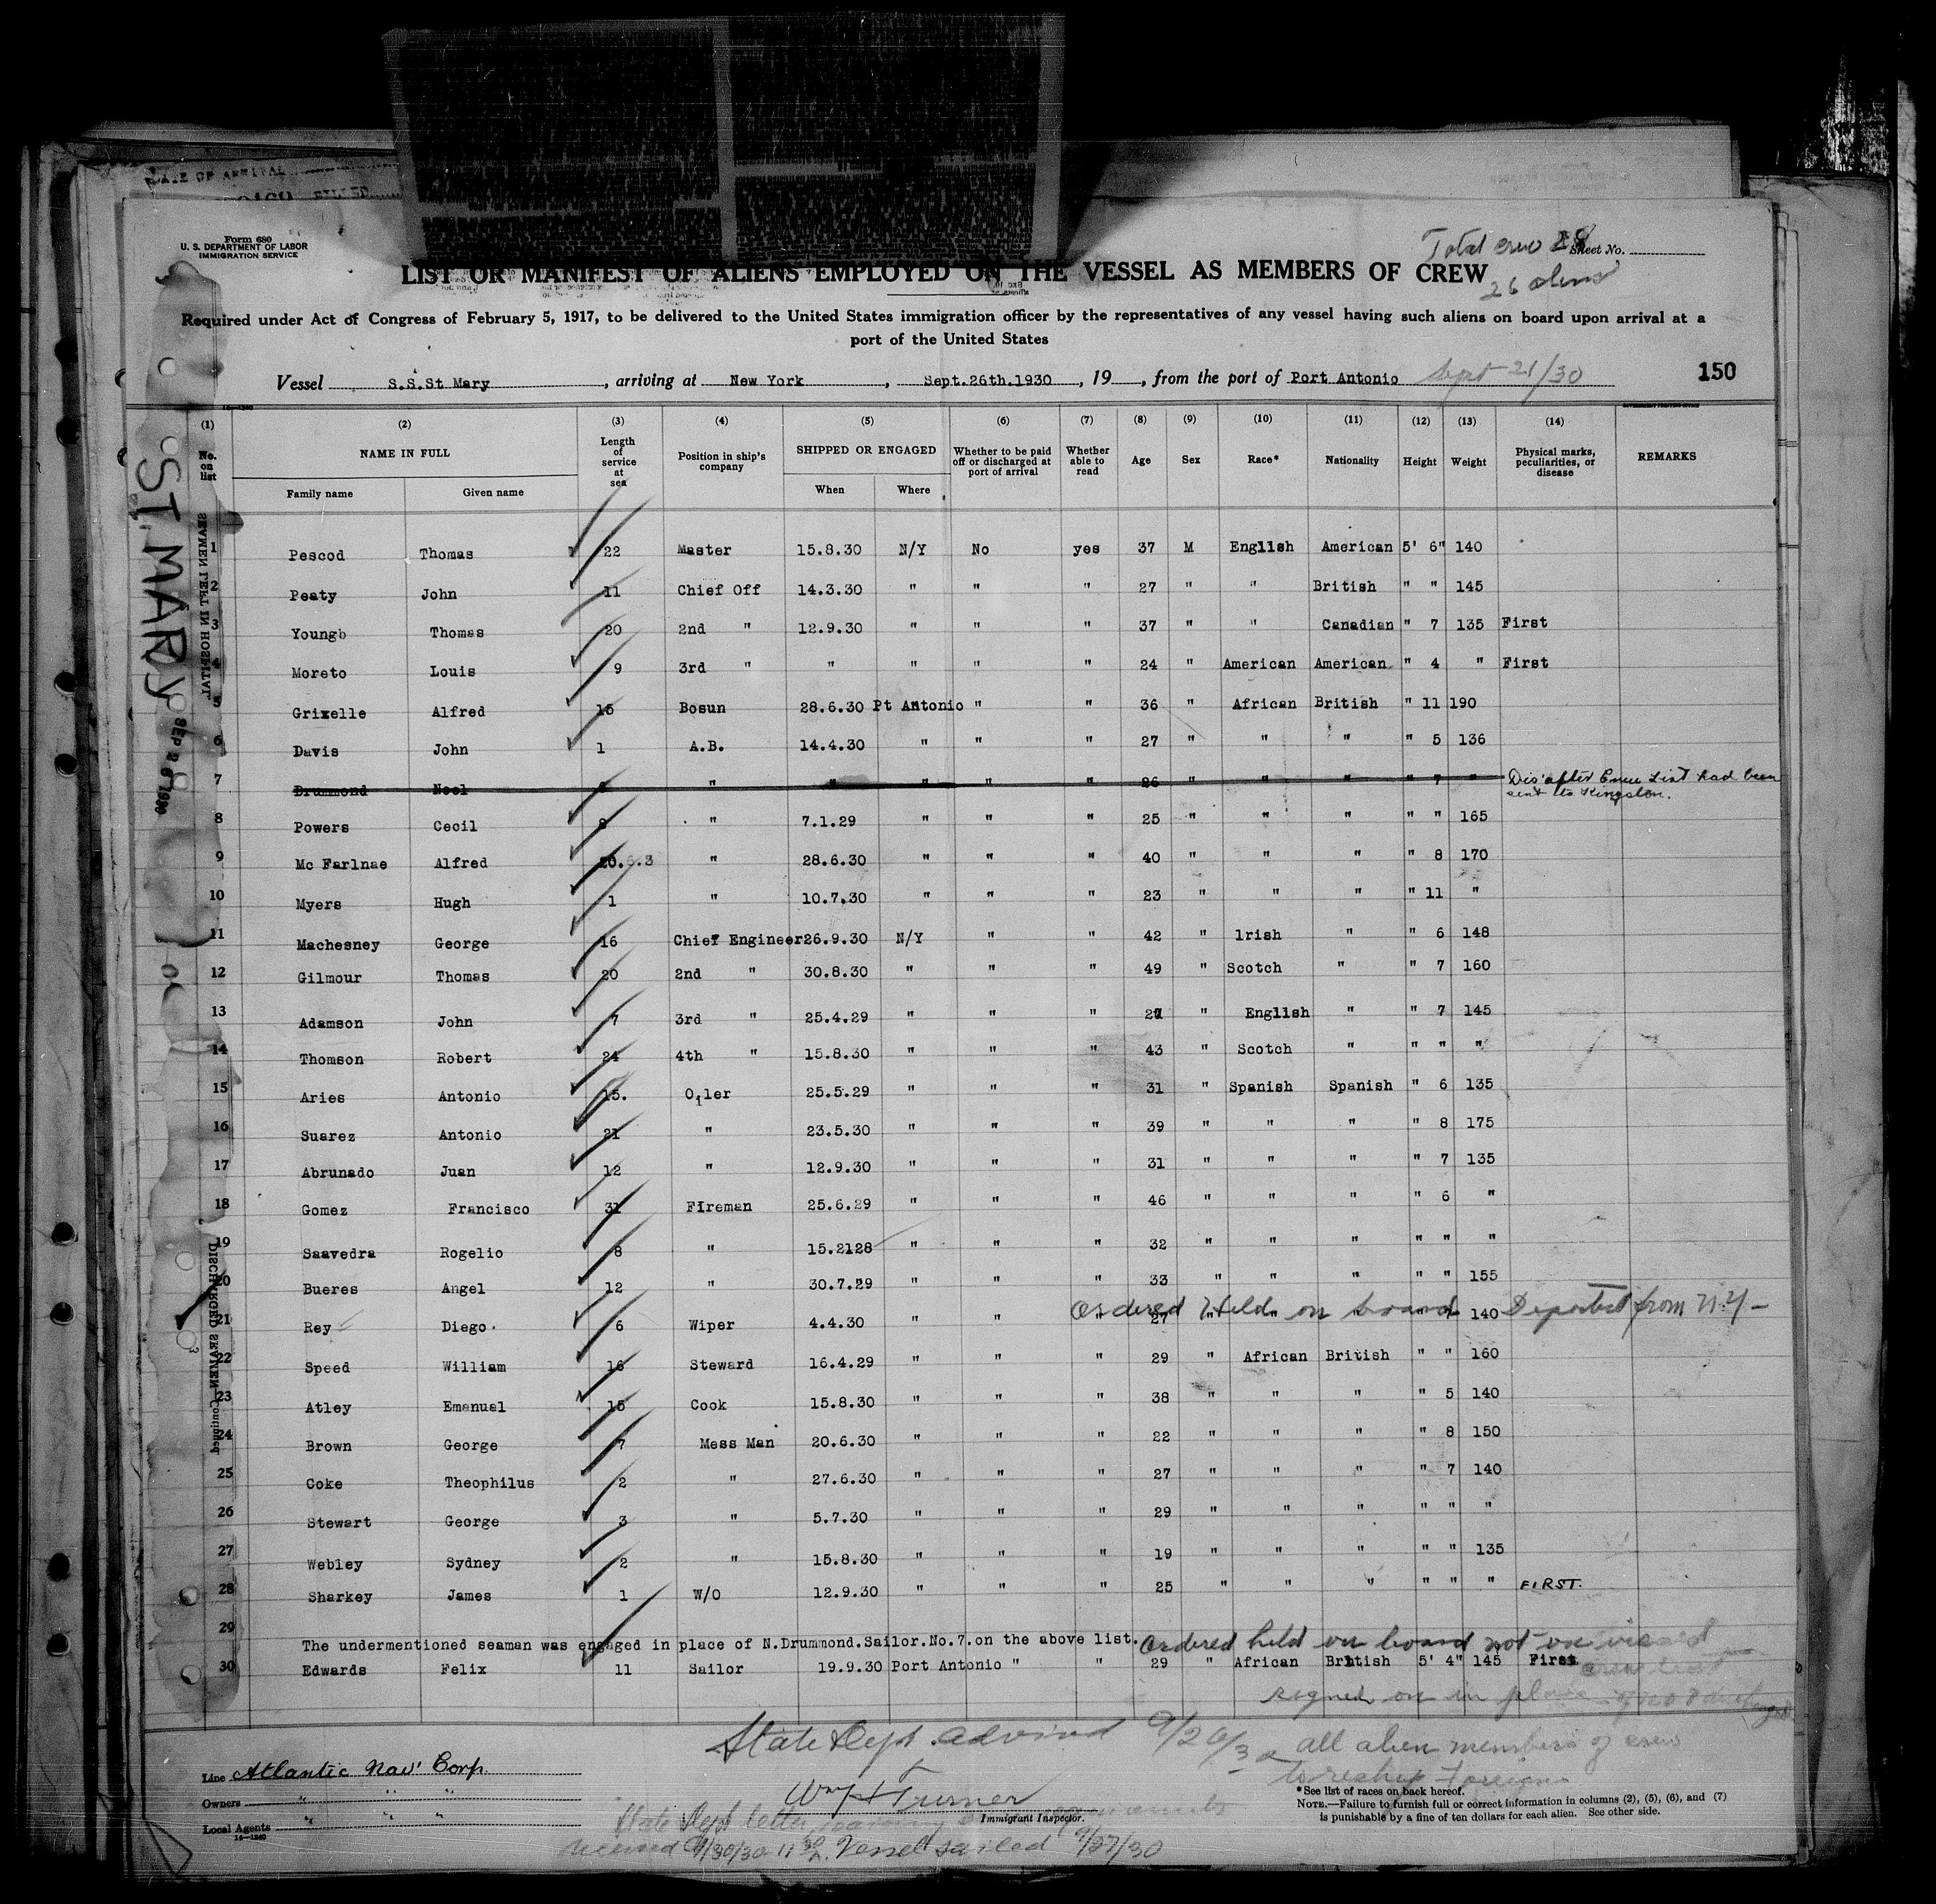 DATE OF ARRIVAL
Form 680
U. S. DEPARTMENT OF LABOR
IMMIGRATION SERVICE
Total crew 28
Sheet No.
LIST OR MANIFEST OF ALIENS EMPLOYED ON THE VESSEL AS MEMBERS OF CREW
26 aliens
Required under Act of Congress of February 5, 1917, to be delivered to the United States immigration officer by the representatives of any vessel having such aliens on board upon arrival at a
port of the United States
Vessel S.S.St Mary , arriving at New York , Sept.26th.1930 , 19 , from the port of Port Antonio Sept 21/30 150
(1) (2) (3) (4) (5) (6) (7) (8) (9) (10) (11) (12) (13) (14)
No. on list NAME IN FULL Length of service at sea Position in ship's company SHIPPED OR ENGAGED Whether to be paid off or discharged at port of arrival Whether able to read Age Sex Race* Nationality Height Weight Physical marks, peculiarities, or disease REMARKS
Family name Given name When Where
1 Pescod Thomas 22 Master 15.8.30 N/Y No yes 37 M English American 5' 6" 140
2 Peaty John 11 Chief Off 14.3.30 " " " 27 " " British " " 145
3 Youngb Thomas 20 2nd " 12.9.30 " " " 37 " " Canadian " 7 135 First
4 Moreto Louis 9 3rd " " " " " 24 " American American " 4 " First
5 Grixelle Alfred 15 Bosun 28.6.30 Pt Antonio " " 36 " African British " 11 190
6 Davis John 1 A.B. 14.4.30 " " " 27 " " " " 5 136
7 Drummond Noel " " " " " 26 " " " " 7 " Dis' after Crew List had been
sent to Kingston.
8 Powers Cecil 8 " 7.1.29 " " " 25 " " " " " 165
9 Mc Farlnae Alfred 20.6.3 " 28.6.30 " " " 40 " " " " 8 170
10 Myers Hugh 1 " 10.7.30 " " " 23 " " " " 11 "
11 Machesney George 16 Chief Engineer 26.9.30 N/Y " " 42 " lrish " " 6 148
12 Gilmour Thomas 20 2nd " 30.8.30 " " " 49 " Scotch " " 7 160
13 Adamson John 7 3rd " 25.4.29 " " " 27 " English " " 7 145
14 Thomson Robert 24 4th " 15.8.30 " " " 43 " Scotch " " " "
15 Aries Antonio 15. Oiler 25.5.29 " " " 31 " Spanish Spanish " 6 135
16 Suarez Antonio 21 " 23.5.30 " " " 39 " " " " 8 175
17 Abrunado Juan 12 " 12.9.30 " " " 31 " " " " 7 135
18 Gomez Francisco 31 FIreman 25.6.29 " " " 46 " " " " 6 "
19 Saavedra Rogelio 8 " 15.2128 " " " 32 " " " " " "
20 Bueres Angel 12 " 30.7.29 " " " 33 " " " " " 155
Ordered Held on board Deported from N.Y-
21 Rey Diego. 6 Wiper 4.4.30 " " " 27 " " " " 7 140
22 Speed William 16 Steward 16.4.29 " " " 29 " African British " " 160
23 Atley Emanual 15 Cook 15.8.30 " " " 38 " " " " 5 140
24 Brown George 7 Mess Man 20.6.30 " " " 22 " " " " 8 150
25 Coke Theophilus 2 " 27.6.30 " " " 27 " " " " 7 140
26 Stewart George 3 " 5.7.30 " " " 29 " " " " " "
27 Webley Sydney 2 " 15.8.30 " " " 19 " " " " " 135
28 Sharkey James 1 W/O 12.9.30 " " " 25 " " " " " " FIRST.
29 The undermentioned seaman was engaged in place of N.Drummond.Sailor.No.7.on the above list. Ordered held on board not on visa'd
crew list
30 Edwards Felix 11 Sailor 19.9.30 Port Antonio " " 29 " African British 5' 4" 145 First
signed on in place of no 7
State Dept. advised 9/26/30 all alien members of crew
to reship foreign
Line Atlantic Nav' Corp.
Owners " "
Local Agents " " "
14—1240
Wm H Turner
Immigrant Inspector.
State Dept letter
received 9/30/30 11 30 A. Vessel sailed 9/27/30
*See list of races on back hereof.
NOTE.—Failure to furnish full or correct information in columns (2), (5), (6), and (7)
is punishable by a fine of ten dollars for each alien. See other side.
ST. MARY
SEP 26 1930
SEAMEN LEFT IN HOSPITAL
DISCHARGED SEAMEN—Continued